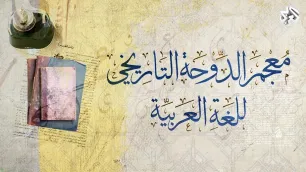 مُعجم الدّوحة التاريخي
للغة العربيّة